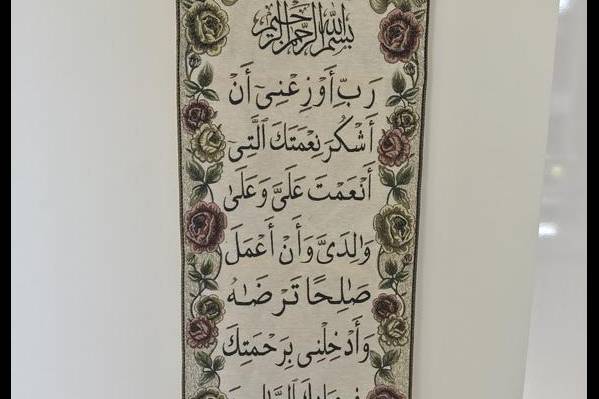 بسم الله الرحمن الرحيم
رَبِّ أَوْزِعْنِىٓ أَنْ
أَشْكُرَ نِعْمَتَكَ ٱلَّتِىٓ
أَنْعَمْتَ عَلَىَّ وَعَلَىٰ
وَٰلِدَىَّ وَأَنْ أَعْمَلَ
صَٰلِحًا تَرْضَىٰهُ
وَأَدْخِلْنِى بِرَحْمَتِكَ